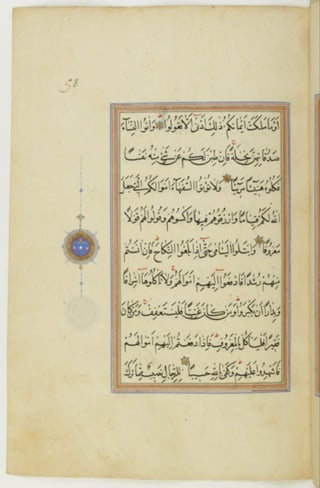 58
أَوْ مَا مَلَكَتْ أَيْمَانُكُمْ ذٰلِكَ أَدْنٰى أَلَّا تَعُولُوا وَآتُوا النِّسَآءَ
صَدُقَاتِهِنَّ نِحْلَةً فَإِنْ طِبْنَ لَكُمْ عَنْ شَيْءٍ مِنْهُ نَفْسًا
فَكُلُوهُ هَنِيئًا مَرِيئًا وَلَا تُؤْتُوا السُّفَهَآءَ أَمْوَالَكُمُ الَّتِي جَعَلَ
اللهُ لَكُمْ قِيَامًا وَارْزُقُوهُمْ فِيهَا وَاكْسُوهُمْ وَقُولُوا لَهُمْ قَوْلًا
مَعْرُوفًا وَابْتَلُوا الْيَتَامٰى حَتّٰى إِذَا بَلَغُوا النِّكَاحَ فَإِنْ آنَسْتُمْ
مِنْهُمْ رُشْدًا فَادْفَعُوا إِلَيْهِمْ أَمْوَالَهُمْ وَلَا تَأْكُلُوهَا إِسْرَافًا
وَبِدَارًا أَنْ يَكْبَرُوا وَمَنْ كَانَ غَنِيًّا فَلْيَسْتَعْفِفْ وَمَنْ كَانَ
فَقِيرًا فَلْيَأْكُلْ بِالْمَعْرُوفِ فَإِذَا دَفَعْتُمْ إِلَيْهِمْ أَمْوَالَهُمْ
فَأَشْهِدُوا عَلَيْهِمْ وَكَفٰى بِاللهِ حَسِيبًا لِلرِّجَالِ نَصِيبٌ مِمَّا تَرَكَ